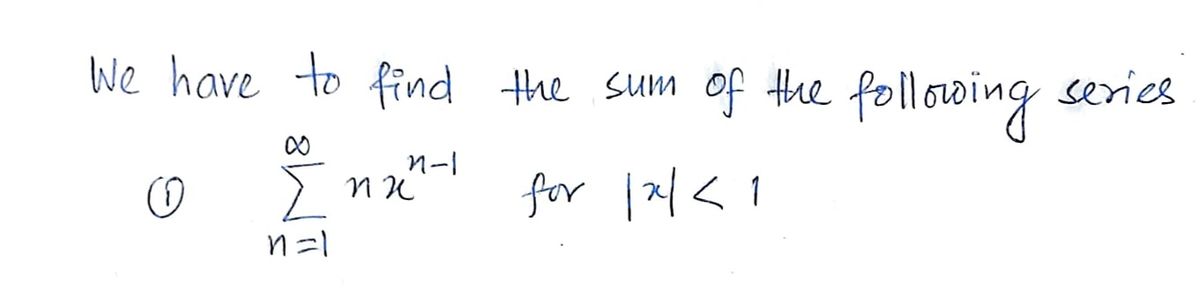 We have to find the sum of the following series
① ∞ Σ n=1 n x^{n-1} for |x| < 1